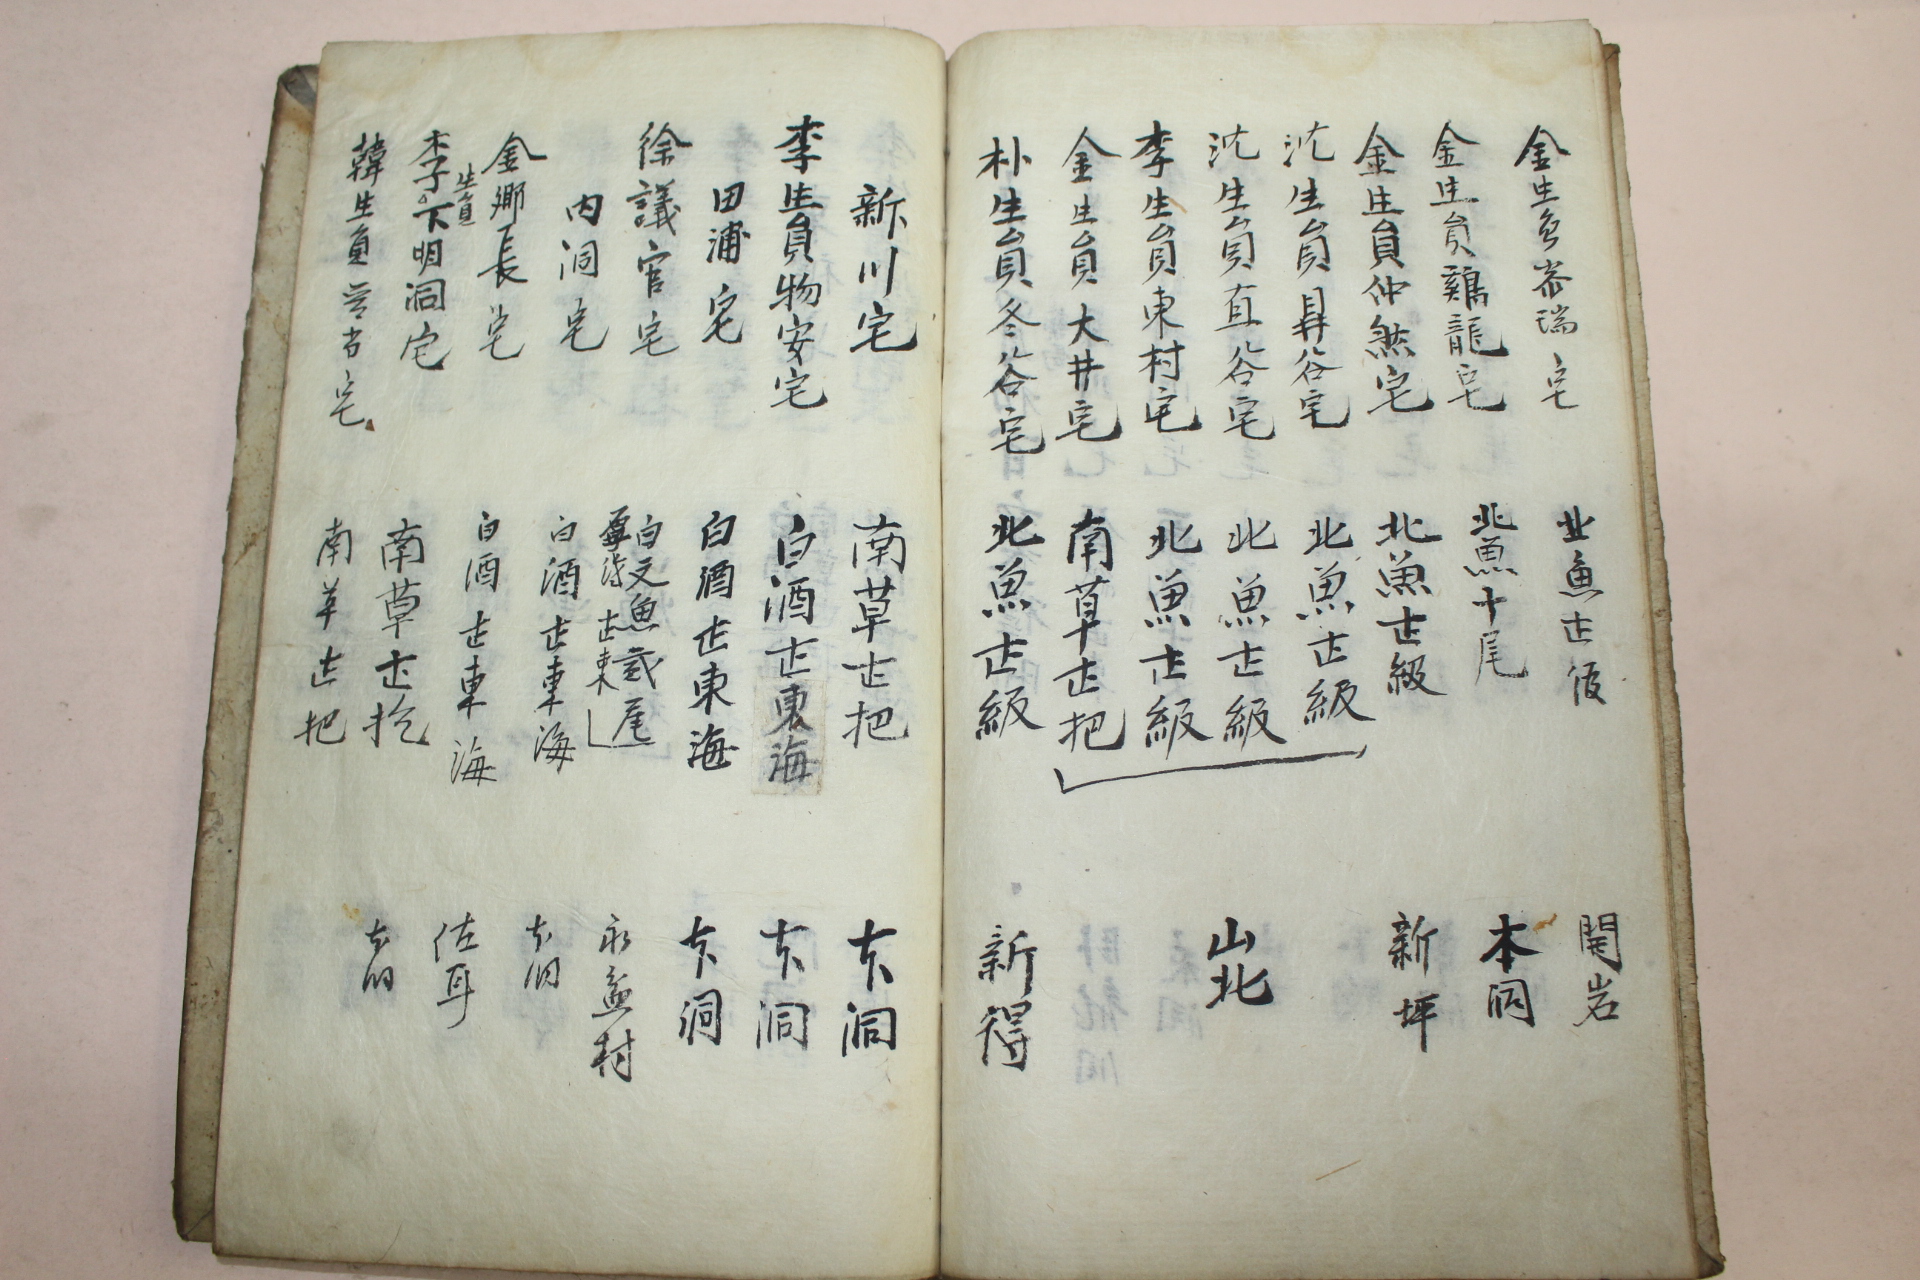 金生員崇瑞宅 北魚十級 開岩
金生員鷄龍宅 北魚十尾 本洞
金生員仲煞宅 北魚𠦄級 新坪
沈生員 谷宅 北魚𠦄級
沈生員直谷宅 北魚𠦄級 山北
李生員東村宅 北魚𠦄級
金生員大井宅 南草𠦄把
朴生員冬谷宅 北魚𠦄級 新得
新川宅 南草𠦄把 本洞
李生員物安宅 白酒𠦄東海 本洞
田浦宅 白酒𠦄東海 本洞
徐議官宅 白文魚貳尾 𠦄束
內洞宅 白酒𠦄東海 本洞
金鄕長宅 白酒𠦄東海 佐耳
李生員下明洞宅 南草𠦄把 本洞
韓生員 宅 南草𠦄把